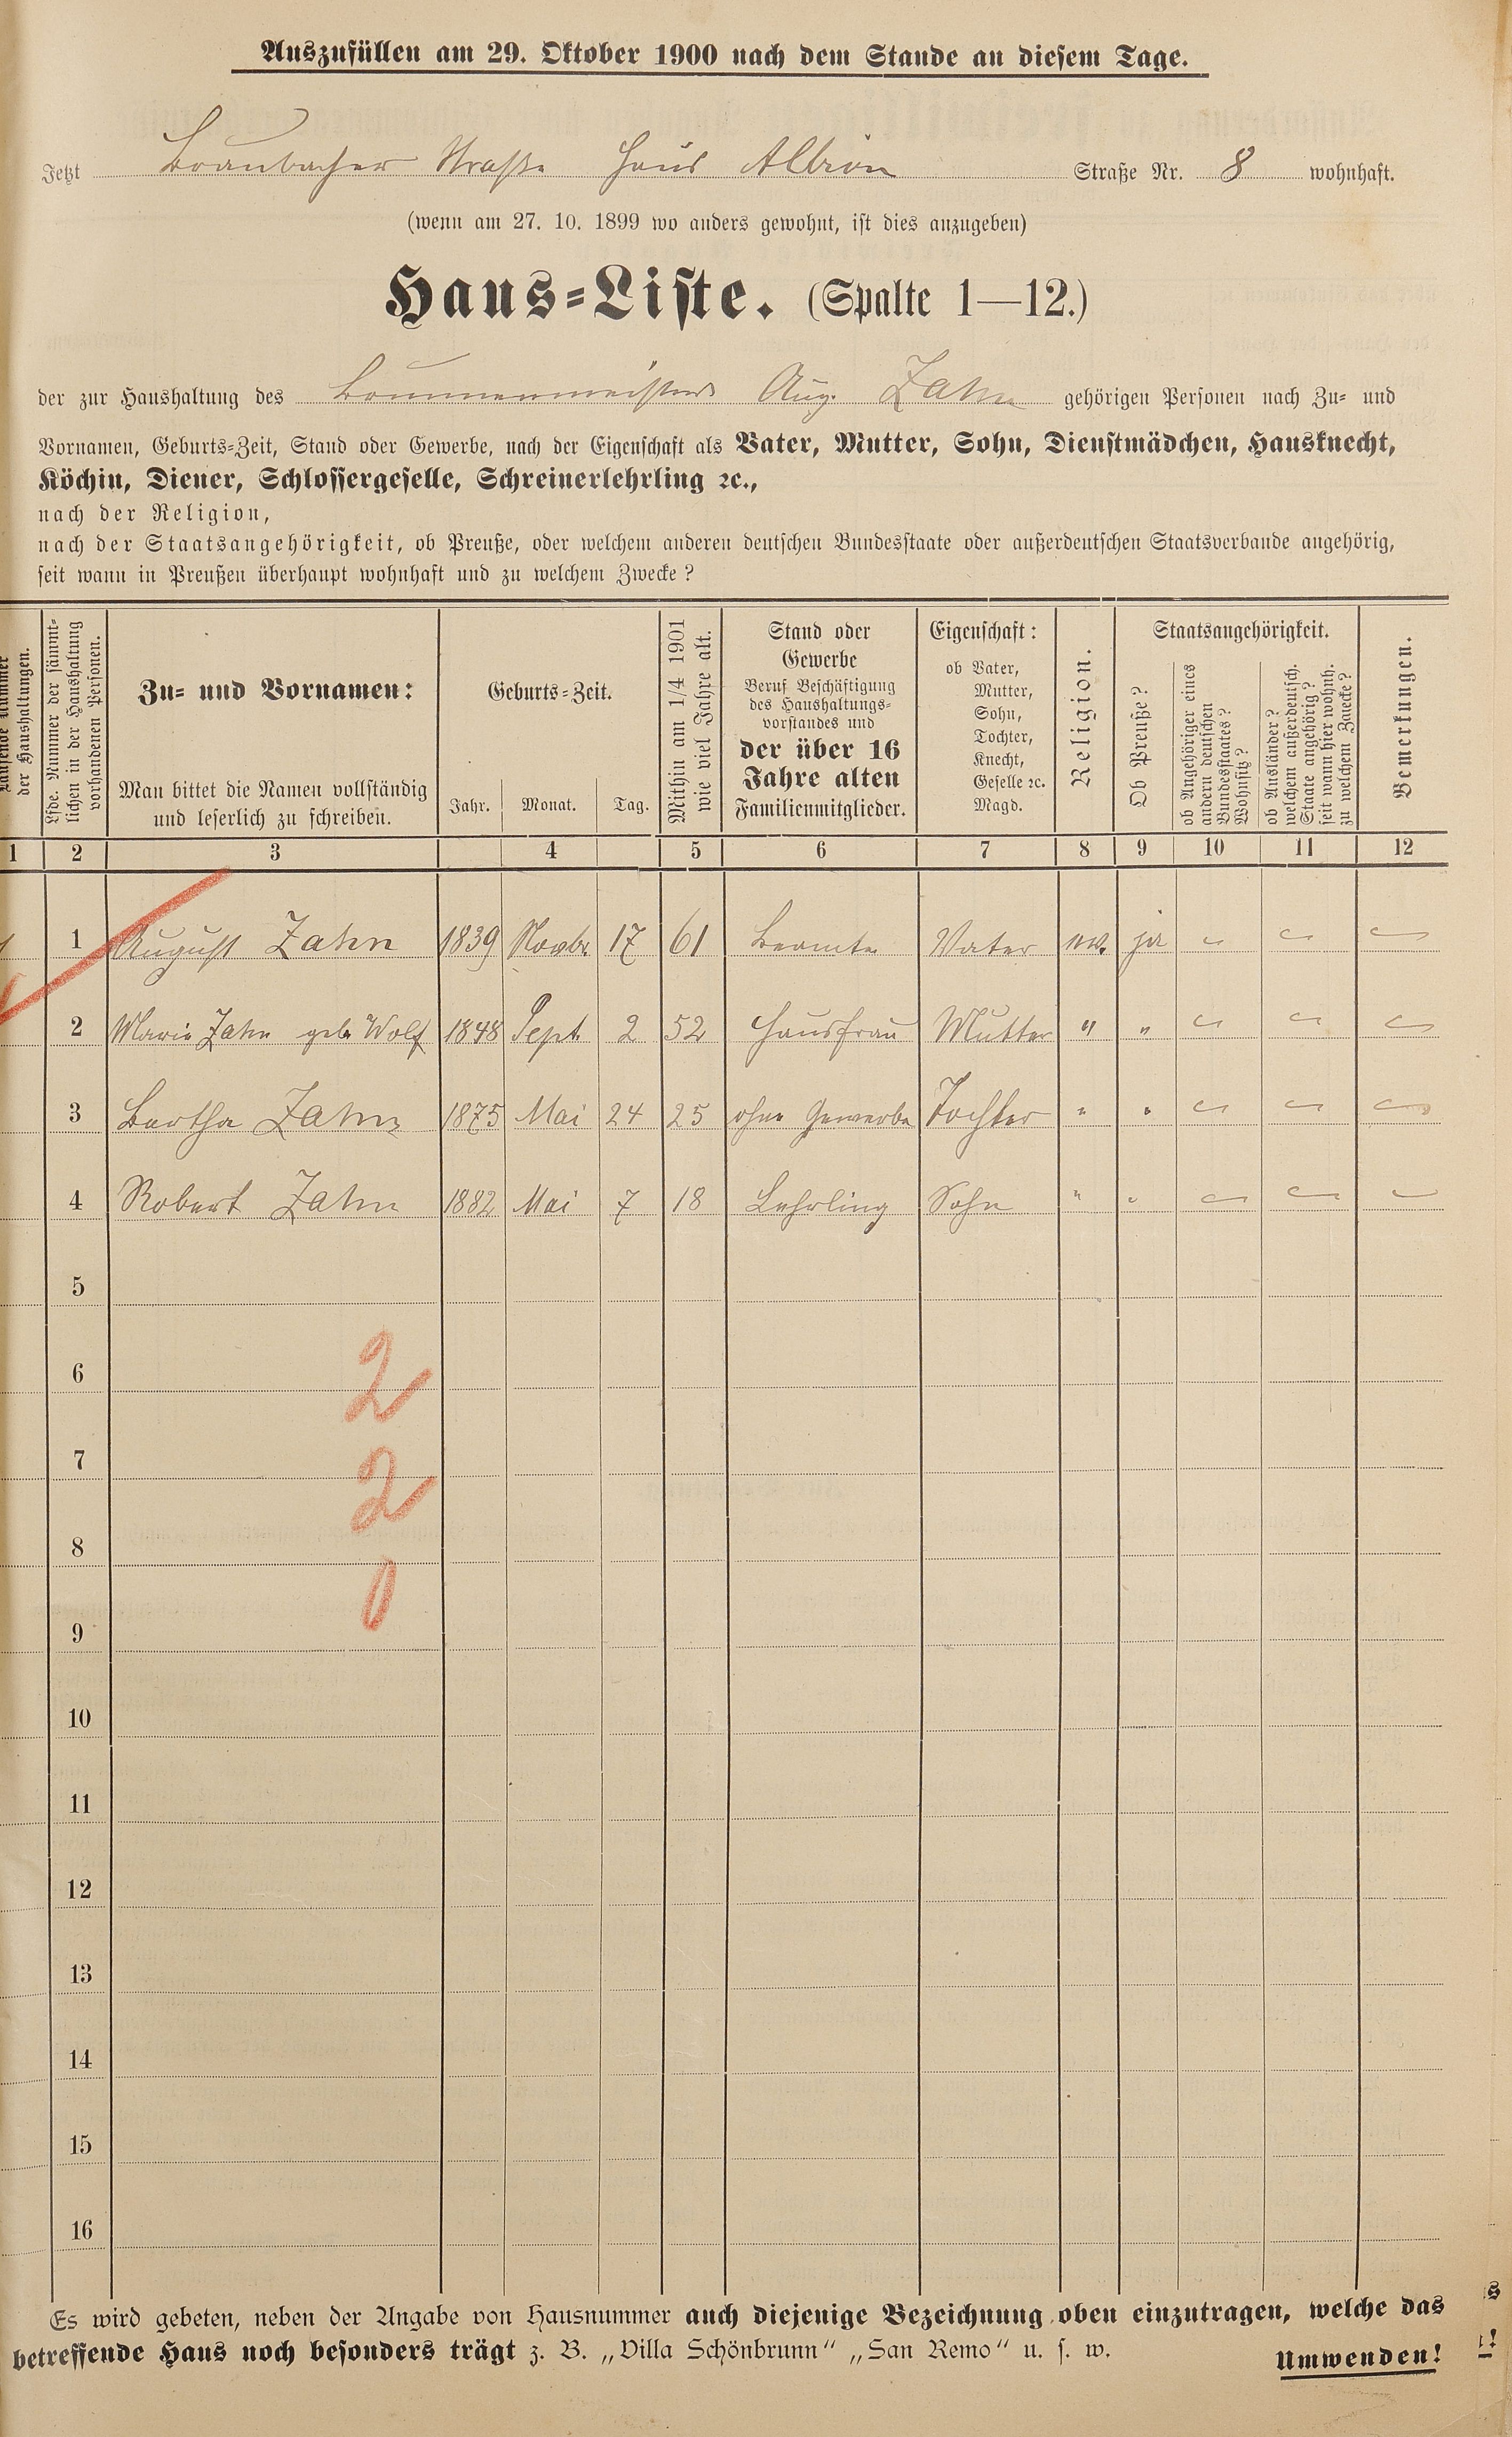 Auszufüllen am 29. Oktober 1900 nach dem Stande an diesem Tage.
Jetzt Braubacher Straße Haus Albion Straße Nr. 8 wohnhaft.
(wenn am 27. 10. 1899 wo anders gewohnt, ist dies anzugeben)
Haus-Liste. (Spalte 1—12.)
der zur Haushaltung des Brunnenmeisters Aug. Zahn gehörigen Personen nach Zu- und
Vornamen, Geburts-Zeit, Stand oder Gewerbe, nach der Eigenschaft als Vater, Mutter, Sohn, Dienstmädchen, Hausknecht,
Köchin, Diener, Schlossergeselle, Schreinerlehrling ꝛc.,
nach der Religion,
nach der Staatsangehörigkeit, ob Preuße, oder welchem anderen deutschen Bundesstaate oder außerdeutschen Staatsverbande angehörig,
seit wann in Preußen überhaupt wohnhaft und zu welchem Zwecke?
Laufende Nummer
der Haushaltungen.
Lfde. Nummer der sämmt-
lichen in der Haushaltung
vorhandenen Personen.
Zu- und Vornamen:
Man bittet die Namen vollständig
und leserlich zu schreiben.
Geburts-Zeit.
Jahr. Monat. Tag.
Mithin am 1/4 1901
wie viel Jahre alt.
Stand oder
Gewerbe
Beruf Beschäftigung
des Haushaltungs-
vorstandes und
der über 16
Jahre alten
Familienmitglieder.
Eigenschaft:
ob Vater,
Mutter,
Sohn,
Tochter,
Knecht,
Geselle ꝛc.
Magd.
Religion.
Staatsangehörigkeit.
Ob Preuße?
ob Angehöriger eines
andern deutschen
Bundesstaates?
Wohnsitz?
ob Ausländer?
welchem außerdeutsch.
Staate angehörig?
seit wann hier wohnh.
zu welchem Zwecke?
Bemerkungen.
1 2 3 4 5 6 7 8 9 10 11 12
1 1 August Zahn 1839 Novbr. 17 61 Beamter Vater ev. ja
2 Marie Zahn geb. Wolf 1848 Sept. 2 52 Hausfrau Mutter " "
3 Bertha Zahn 1875 Mai 24 25 ohne Gewerbe Tochter " "
4 Robert Zahn 1882 Mai 7 18 Lehrling Sohn " "
5
6
2
7
2
8
0
9
10
11
12
13
14
15
16
Es wird gebeten, neben der Angabe von Hausnummer auch diejenige Bezeichnung oben einzutragen, welche das
betreffende Haus noch besonders trägt z. B. „Villa Schönbrunn“ „San Remo“ u. s. w.
Umwenden!